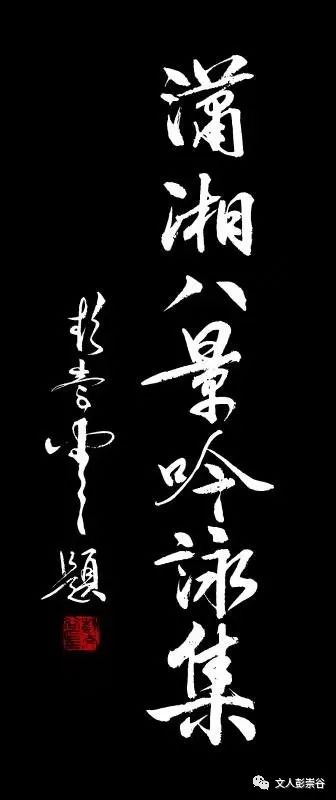 瀟湘八景吟詠集
彭崇谷題
文人彭崇谷